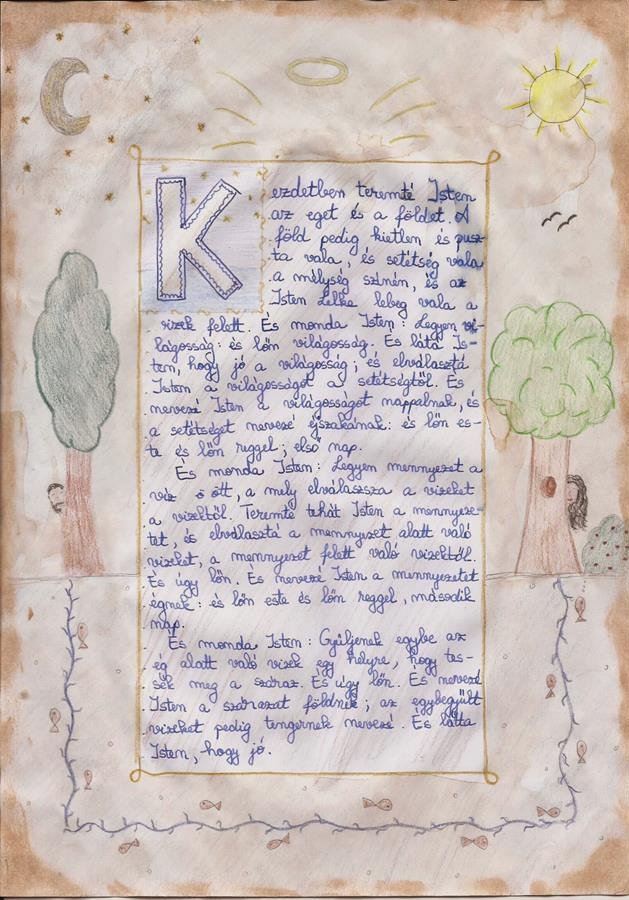 Kezdetben teremté Isten
az eget és a földet. A
föld pedig kietlen és pusz-
ta vala, és setétség vala
a mélység szinén, és az
Isten Lelke lebeg vala a
vizek felett. És monda Isten: Legyen vi-
lágosság: és lőn világosság. És látá Is-
ten, hogy jó a világosság; és elválasztá
Isten a világosságot a setétségtől. És
nevezé Isten a világosságot nappalnak, és
a setétséget nevezé éjszakának: és lőn es-
te és lőn reggel; első nap.
És monda Isten: Legyen mennyezet a
víz ött, a mely elválaszsza a vizeket
a vizektől. Teremté tehát Isten a mennyeze-
tet, és elválasztá a mennyezet alatt való
vizeket, a mennyezet felett való vizektől.
És úgy lőn. És nevezé Isten a mennyezetet
égnek: és lőn este és lőn reggel, második
nap.
És monda Isten: Gyűljenek egybe az
ég alatt való vizek egy helyre, hogy tes-
sék meg a száraz. És úgy lőn. És nevezé
Isten a szárazat földnek; az egybegyűlt
vizeket pedig tengernek nevezé. És látta
Isten, hogy jó.